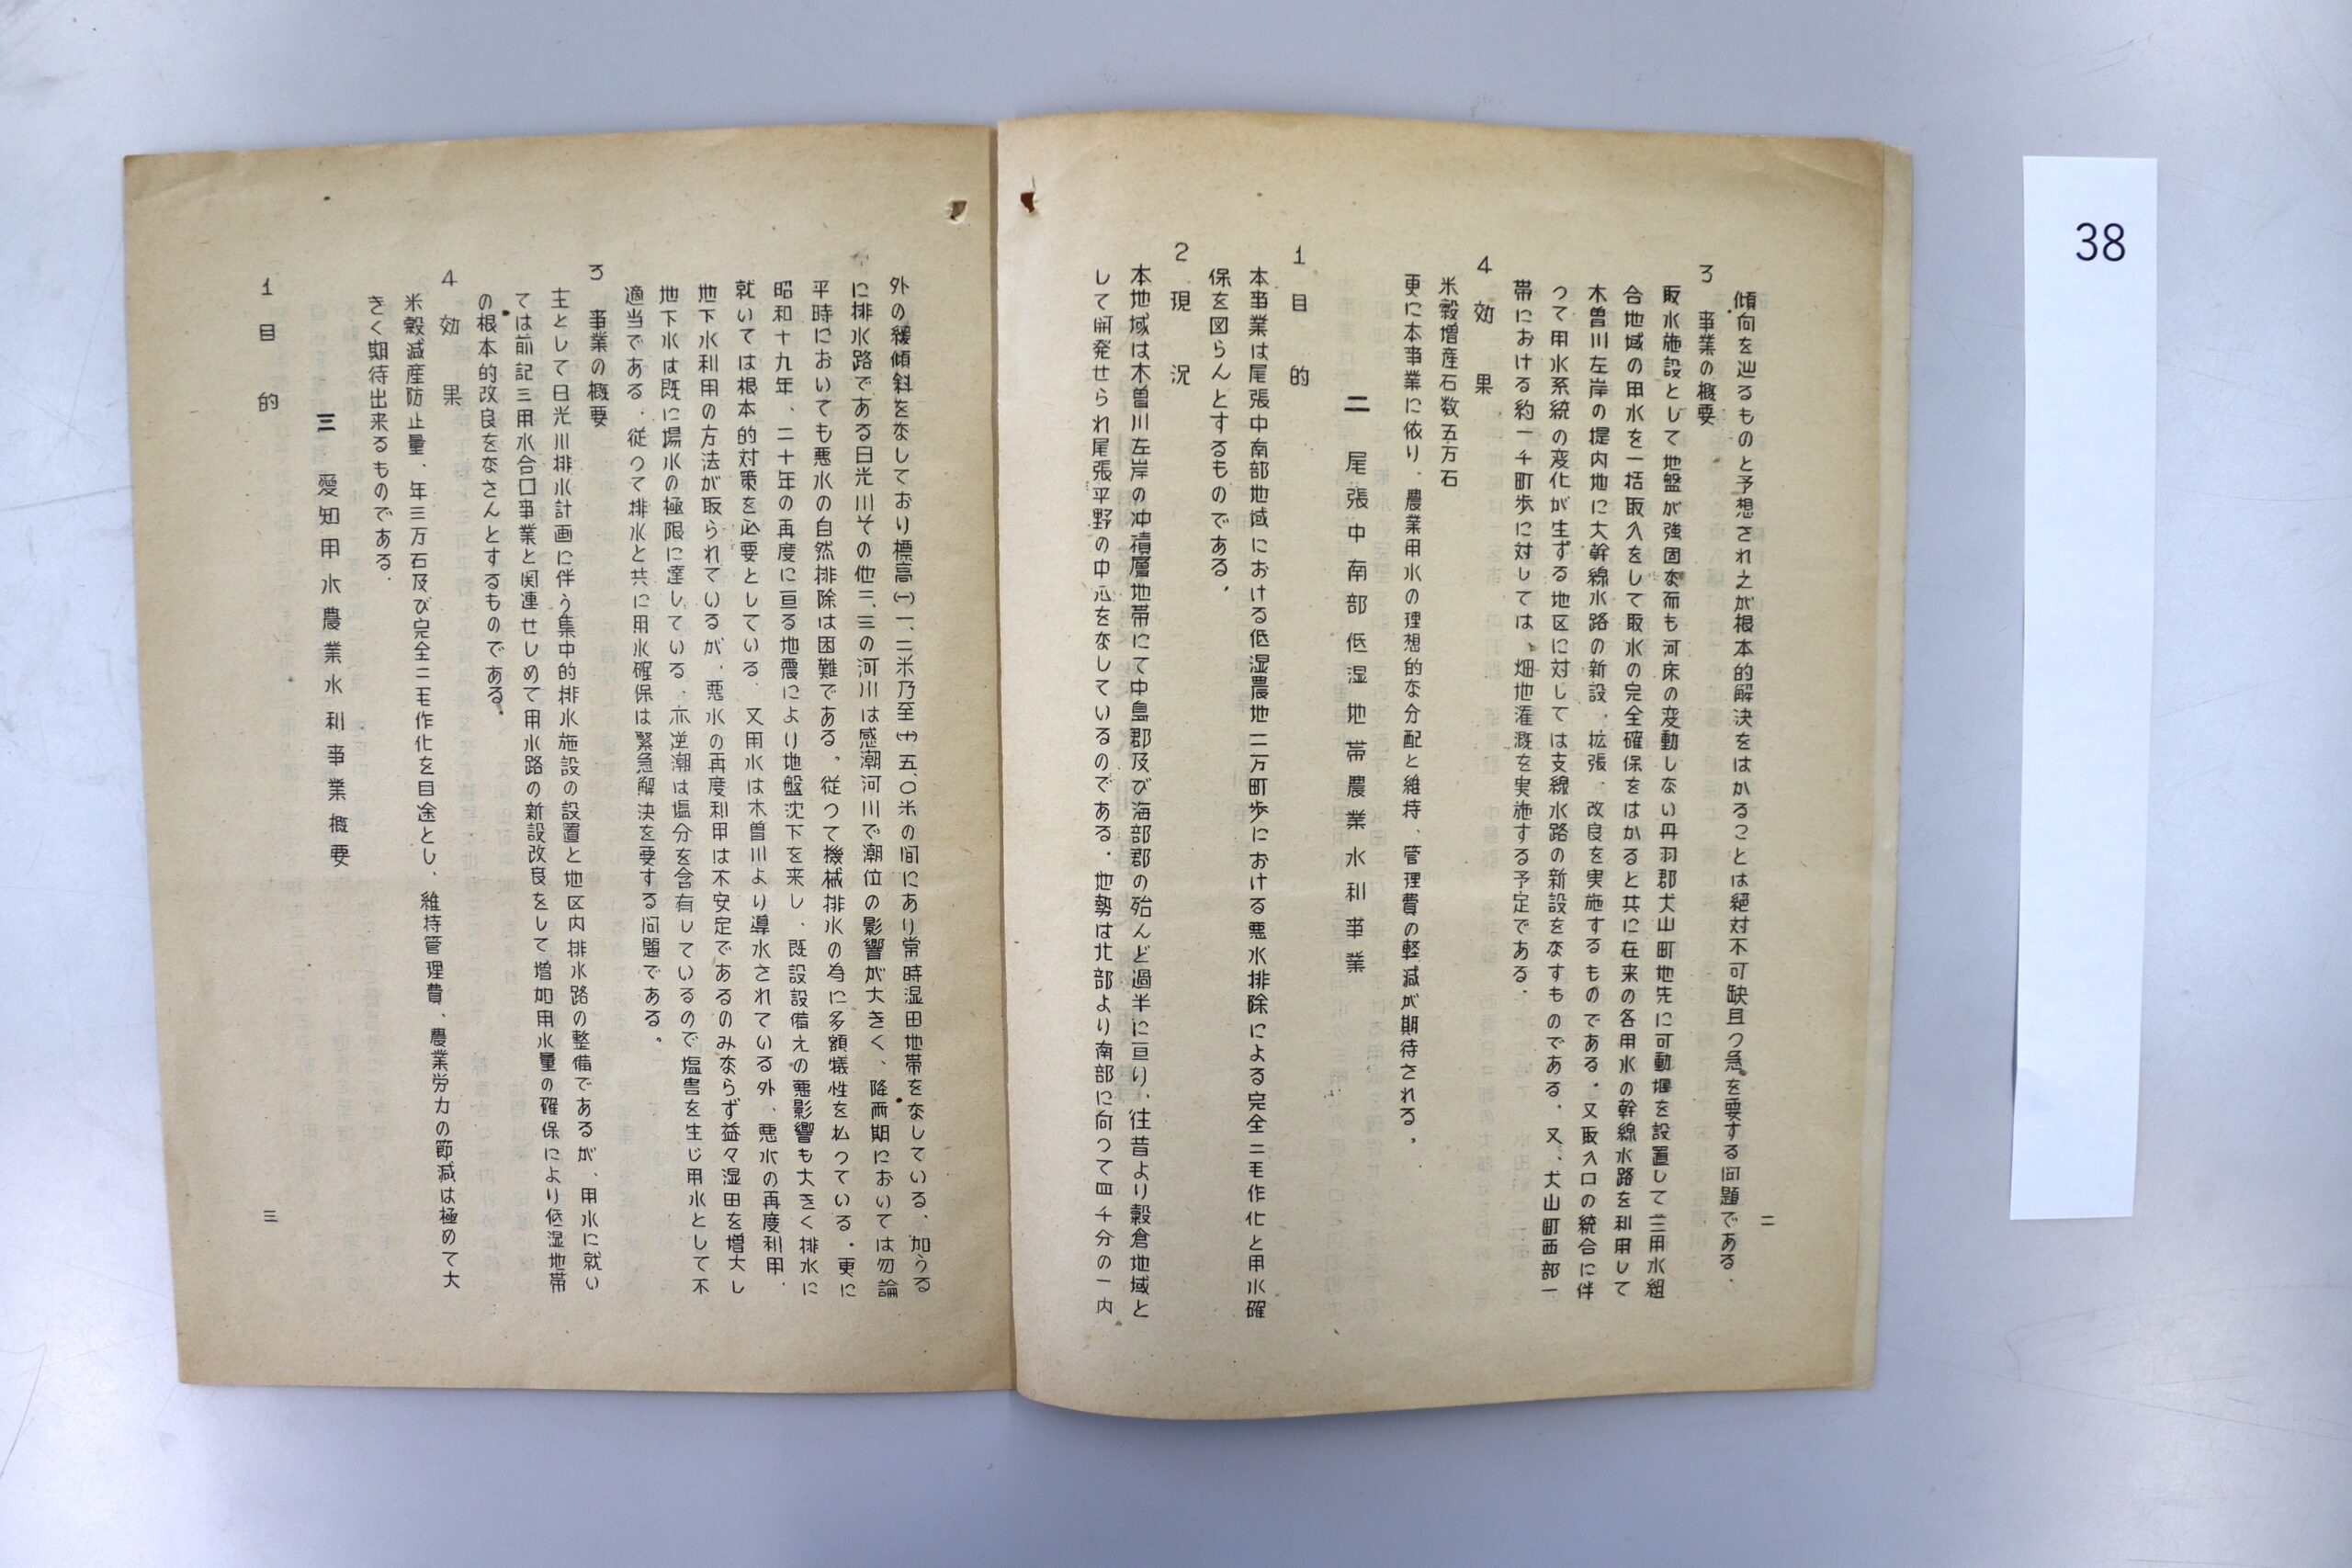 傾向を辿るものと予想され之が根本的解決をはかることは絶対不可缺且つ急を要する问題である.
3 事業の概要
取水施設として地盤が強固な而も河床の変動しない丹羽郡犬山町地先に可動堰を設置して三用水組
合地域の用水を一括取入をして取水の完全確保をはかると共に在来の各用水の幹線水路を利用して
木曽川左岸の堤内地に大幹線水路の新設、拡張、改良を実施するものである.又取入口の統合に伴
つて用水系統の変化が生ずる地区に対しては支線水路の新設をなすものである.又、犬山町西部一
帯における約一千町歩に対しては、畑地灌漑を実施する予定である.
4 効果
米穀増産石数五万石
更に本事業に依り、農業用水の理想的な分配と維持、管理費の軽減が期待される,
二 尾張中南部低湿地帯農業水利事業
1 目的
本事業は尾張中南部地域における低湿農地二万町歩における悪水排除による完全二毛作化と用水確
保を図らんとするものである,
2 現況
本地域は木曽川左岸の冲積層地帯にて中島郡及び海部郡の殆んど過半に亘り、往昔より穀倉地域と
して開発せられ尾張平野の中心をなしているのである.地勢は北部より南部に向つて四千分の一内
二
外の緩傾斜をなしており標高(一)一、二米乃至(十)五、〇米の间にあり常時湿田地帯をなしている、加うる
に排水路である日光川その他二、三の河川は感潮河川で潮位の影響が大きく、降雨期においては勿論
平時においても悪水の自然排除は困難である.従つて機械排水の為に多額犠性を払つている.更に
昭和十九年、二十年の再度に亘る地震により地盤沈下を来し、既設設備えの悪影響も大きく排水に
就いては根本的対策を必要としている.又用水は木曽川より導水されている外、悪水の再度利用、
地下水利用の方法が取られているが、悪水の再度利用は不安定であるのみならず益々湿田を増大し
地下水は既に揚水の極限に達している.亦逆潮は塩分を含有しているので塩害を生じ用水として不
適当である.従つて排水と共に用水確保は緊急解決を要する问題である.
3 事業の概要
主として日光川排水計画に伴う集中的排水施設の設置と地区内排水路の整備であるが、用水に就い
ては前記三用水合口事業と関連せしめて用水路の新設改良をして増加用水量の確保により低湿地帯
の根本的改良をなさんとするものである.
4 効果
米穀減産防止量、年三万石及び完全二毛作化を目途とし、維持管理費、農業労力の節減は極めて大
きく期待出来るものである.
三 愛知用水農業水利事業概要
1 目的
三
38